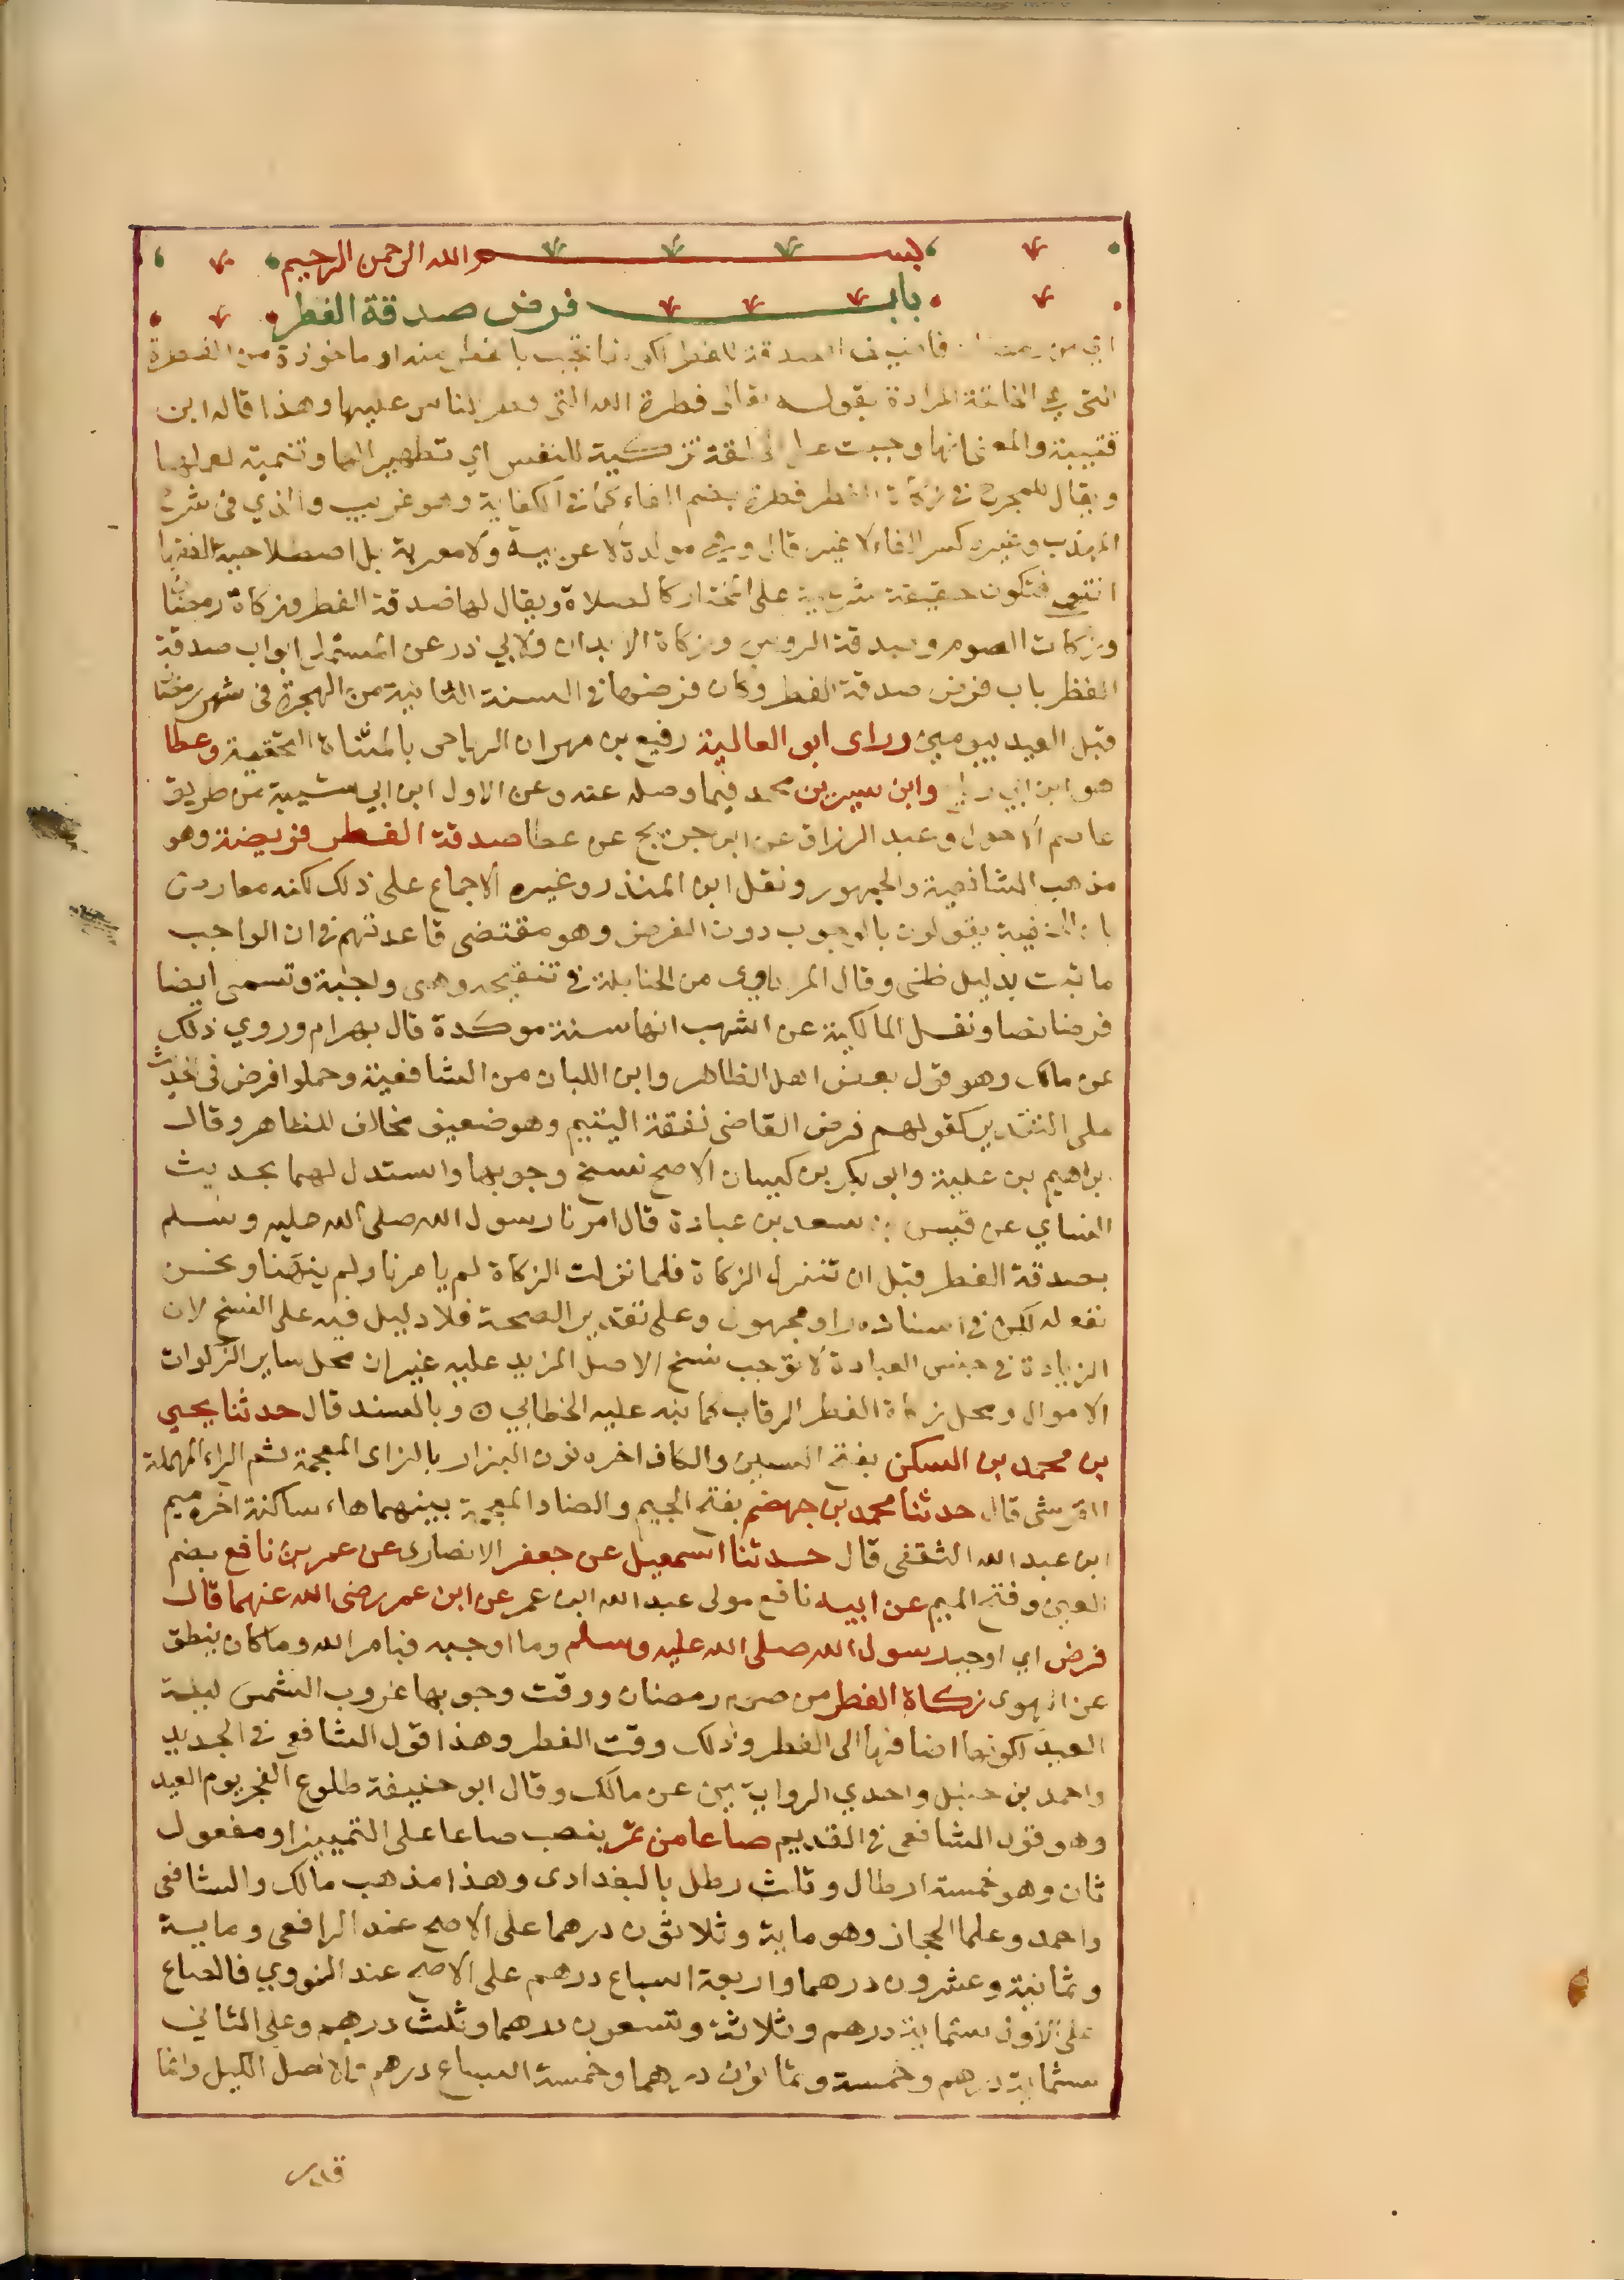 بسم الله الرحمن الرحيم
باب فرض صدقة الفطر
اي من رمضان فاضيفت الصدقة للفطر لكونها تجب بالفطر منه او ماخوذة من الفطرة
التي هي الخلقة المرادة بقوله تعالى فطرة الله التي فطر الناس عليها وهذا قاله ابن
قتيبة والمعنى انها وجبت على الخلقة تزكية للنفس اي تطهيرا لها وتنمية لعملها
ويقال للمخرج في زكاة الفطر فطرة بضم الفاء كما في الكفاية وهو غريب والذي في شرح
المهذب وغيره كسر الفاء لا غير قال وهي مولدة لا عربية ولا معربة بل اصطلاحية للفقها
انتهى فتكون حقيقة شرعية على المختار كالصلاة ويقال لها صدقة الفطر وزكاة رمضان
وزكات الصوم وصدقة الروس وزكاة الابدان ولابي ذر عن المستملي ابواب صدقة
الفطر باب فرض صدقة الفطر وكان فرضها في السنة الثانية من الهجرة في شهر رمضان
قبل العيد بيومين وراى ابو العالية رفيع بن مهران الرياحي بالمثناة التحتية وعطا
هو ابن ابي رباح وابن سيرين محمد فيما وصله عنه وعن الاول ابن ابي شيبة من طريق
عاصم الاحول وعبد الرزاق عن ابن جريج عن عطا صدقة الفطر فريضة وهو
مذهب الشافعية والجمهور ونقل ابن المنذر وغيره الاجماع على ذلك لكنه معارض
بان الحنفية يقولون بالوجوب دون الفرض وهو مقتضى قاعدتهم في ان الواجب
ما ثبت بدليل ظني وقال المرداوي من الحنابلة في تنقيحه وهي واجبة وتسمى ايضا
فرضا نصا ونقل المالكية عن اشهب انها سنة موكدة قال بهرام وروي ذلك
عن مالك وهو قول بعض اهل الظاهر وابن اللبان من الشافعية وحملوا فرض في الحديث
على التقدير كقولهم فرض القاضي نفقة اليتيم وهو ضعيف مخالف للظاهر وقال
ابراهيم بن علية وابو بكر بن كيسان الاصم نسخ وجوبها واستدل لهما بحديث
النساي عن قيس بن سعد بن عبادة قال امرنا رسول الله صلى الله عليه وسلم
بصدقة الفطر قبل ان تنزل الزكاة فلما نزلت الزكاة لم يامرنا ولم ينهنا ونحن
نفعله لكن في اسناده راو مجهول وعلى تقدير الصحة فلا دليل فيه على النسخ لان
الزيادة في جنس العبادة لا توجب نسخ الاصل المزيد عليه غير ان محل ساير الزكوات
الاموال ومحل زكاة الفطر الرقاب كما نبه عليه الخطابي ه وبالسند قال حدثنا يحيى
بن محمد بن السكن بفتح السين والكاف اخره نون البزار بالزاى المعجمة ثم الراء المهملة
القرشي قال حدثنا محمد بن جهضم بفتح الجيم والضاد المعجمة بينهما هاء ساكنة اخره ميم
ابن عبد الله الثقفي قال حدثنا اسمعيل عن جعفر الانصارى عن عمر بن نافع بضم
العين وفتح الميم عن ابيه نافع مولى عبد الله ابن عمر عن ابن عمر رضى الله عنهما قال
فرض اي اوجب رسول الله صلى الله عليه وسلم وما اوجبه فبامر الله وما كان ينطق
عن الهوى زكاة الفطر من صوم رمضان ووقت وجوبها غروب الشمس ليلة
العيد لكونها اضافها الى الفطر وذلك وقت الفطر وهذا قول الشافعي في الجديد
واحمد بن حنبل واحدي الروايتين عن مالك وقال ابو حنيفة طلوع الفجر يوم العيد
وهو قول الشافعي في القديم صاعا من تمر بنصب صاعا على التمييز او مفعول
ثان وهو خمسة ارطال وثلث رطل بالبغدادى وهذا مذهب مالك والشافعي
واحمد وعلما الحجاز وهو ماية وثلاثون درهما على الاصح عند الرافعي وماية
وثمانية وعشرون درهما واربعة اسباع درهم على الاصح عند النووي فالصاع
على الاول ستماية درهم وثلاثة وتسعون درهما وثلث درهم وعلى الثاني
ستماية درهم وخمسة وثمانون درهما وخمسة اسباع درهم والاصل الكيل وانما
قدر